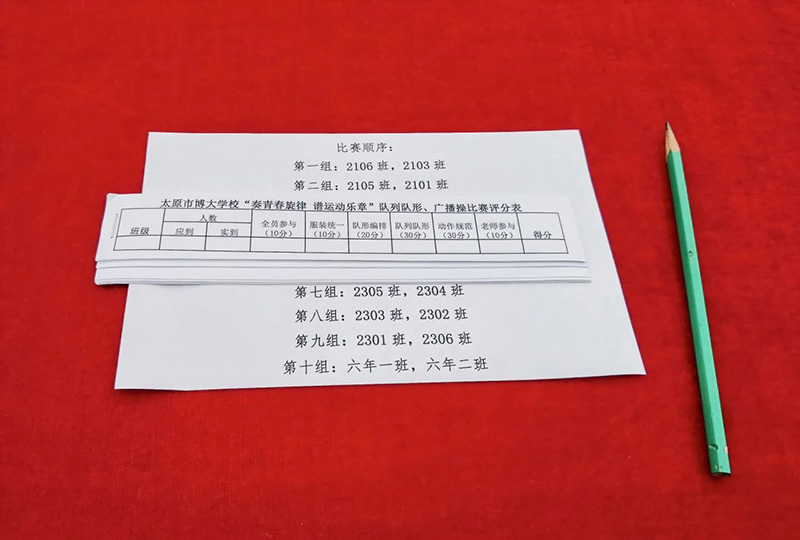 比赛顺序：
第一组：2106 班，2103 班
第二组：2105 班，2101 班
太原市博大学校“奏青春旋律 谱运动乐章”队列队形、广播操比赛评分表
班级 人数 全员参与 服装统一 队形编排 队列队形 动作规范 老师参与 得分
应到 实到 （10分） （10分） （20分） （30分） （30分） （10分）
第七组：2305 班，2304 班
第八组：2303 班，2302 班
第九组：2301 班，2306 班
第十组：六年一班，六年二班